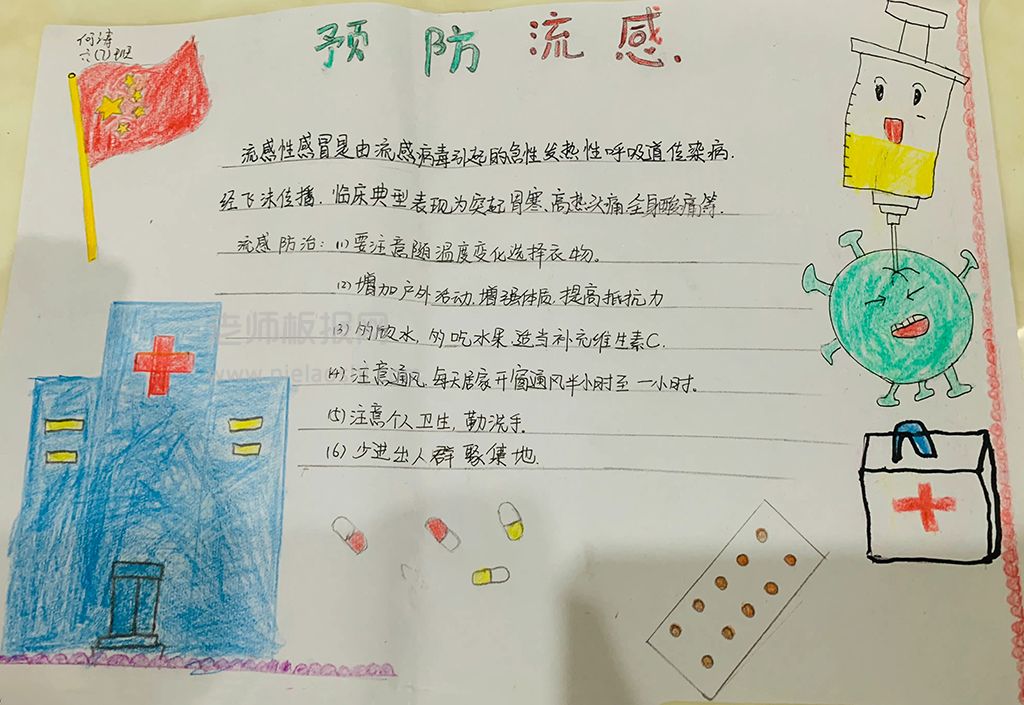 预防流感.
何涛
六(7)班
流感性感冒是由流感病毒引起的急性发热性呼吸道传染病.
经飞沫传播.临床典型表现为突起胃寒、高热头痛、全身酸痛等.
流感防治：(1)要注意随温度变化选择衣物。
(2)增加户外活动,增强体质,提高抵抗力
(3)的饮水,的吃水果,适当补充维生素C.
(4)注意通风,每天居家开窗通风半小时至一小时.
(5)注意个人卫生,勤洗手.
(6)少进出人群聚集地.
老师板报网